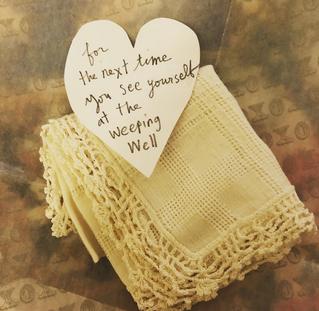 for
the next time
you see yourself
at the
weeping
Well